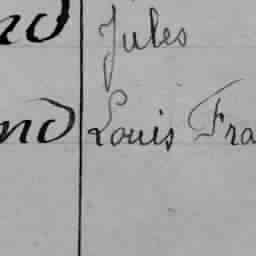 nd Jules
nd Louis Fra